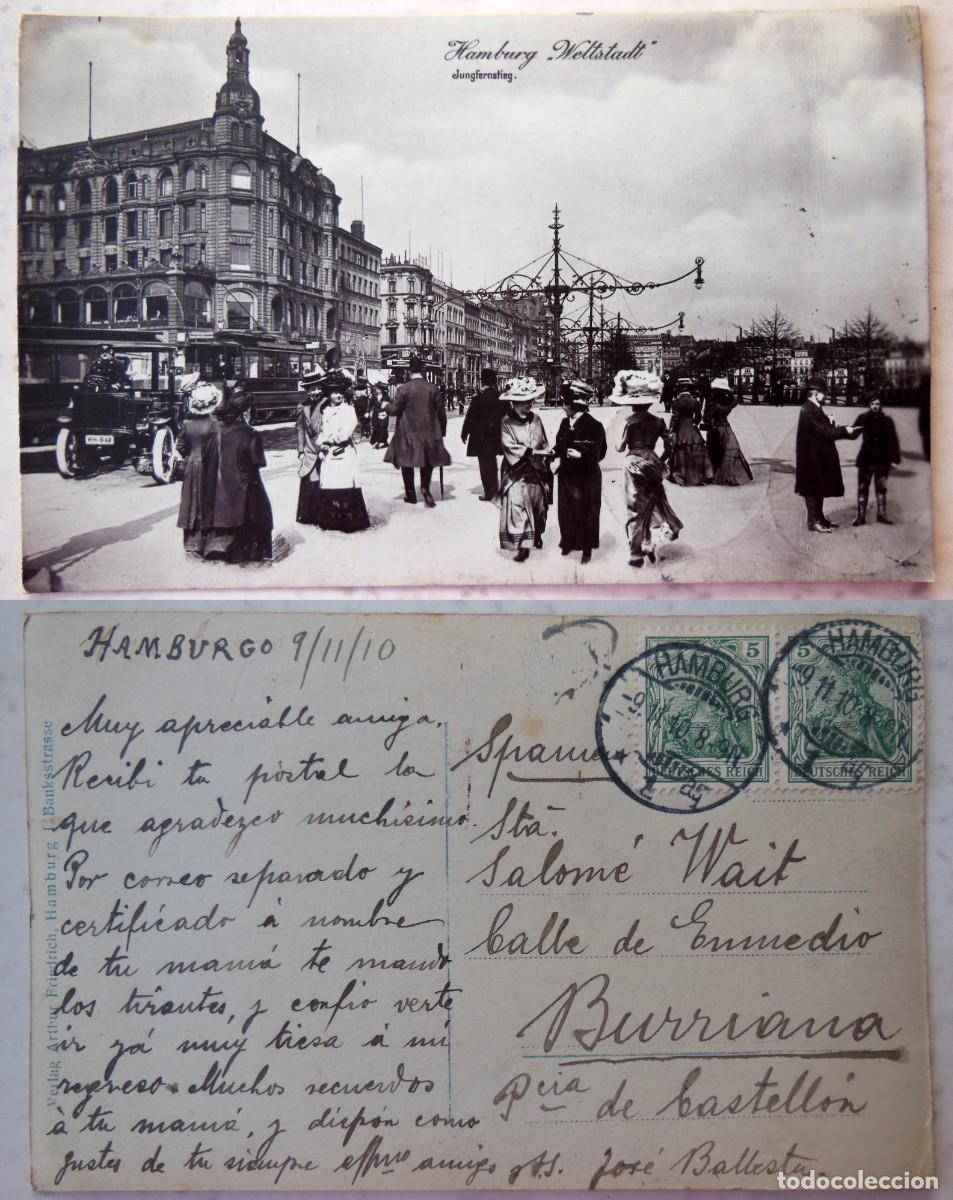 Hamburg „Weltstadt"
Jungfernstieg.
HH-941
HAMBURGO 9/11/10
Muy apreciable amiga.
Recibi tu postal la
que agradezco muchísimo.
Por correo separado y
certificado á nombre
de tu mamá te mando
los tirantes, y confio verte
ir yá muy tiesa á mi
regreso. Muchos recuerdos
á tu mamá, y dispón como
gustes de tu siempre affmo amigo José Ballester
Verlag Arthur Friedrich, Hamburg 1 Banksstrasse
HAMBURG
9.11.10.8-9N
1
5
DEUTSCHES REICH
HAMBURG
9.11.10.8-9N
1
5
DEUTSCHES REICH
Spanien
Sta.
Salomé Wait
Calle de Enmedio
Burriana
Pcia de Castellón
todocoleccion